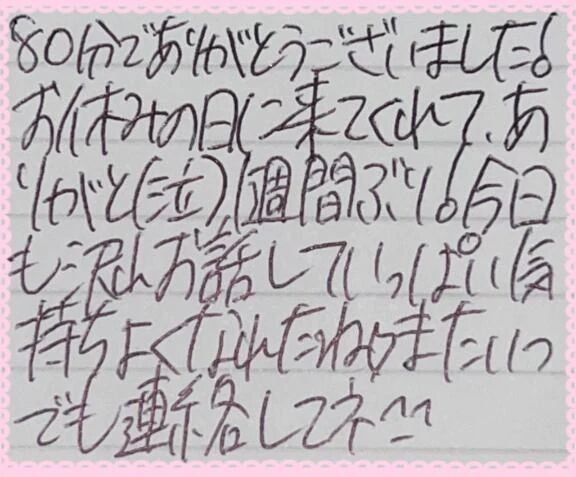 80分でありがとうございました!
お休みの日に来てくれて、あ
りがと(泣)1週間ぶり!今日
も沢山お話していっぱい気
持ちよくなれたねまたいつ
でも連絡してネ^^